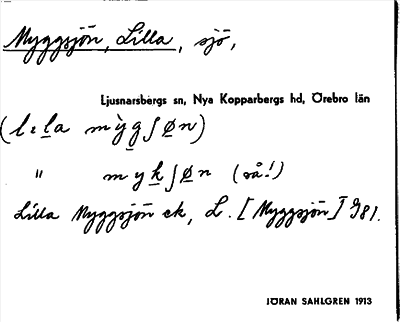 Myggsjön, Lilla, sjö,
Ljusnarsbergs sn, Nya Kopparbergs hd, Örebro län
(lɩla mỳgʃøn)
" mykʃøn (så!)
Lilla Myggsjön ek, L. [Myggsjön] J981.
JÖRAN SAHLGREN 1913